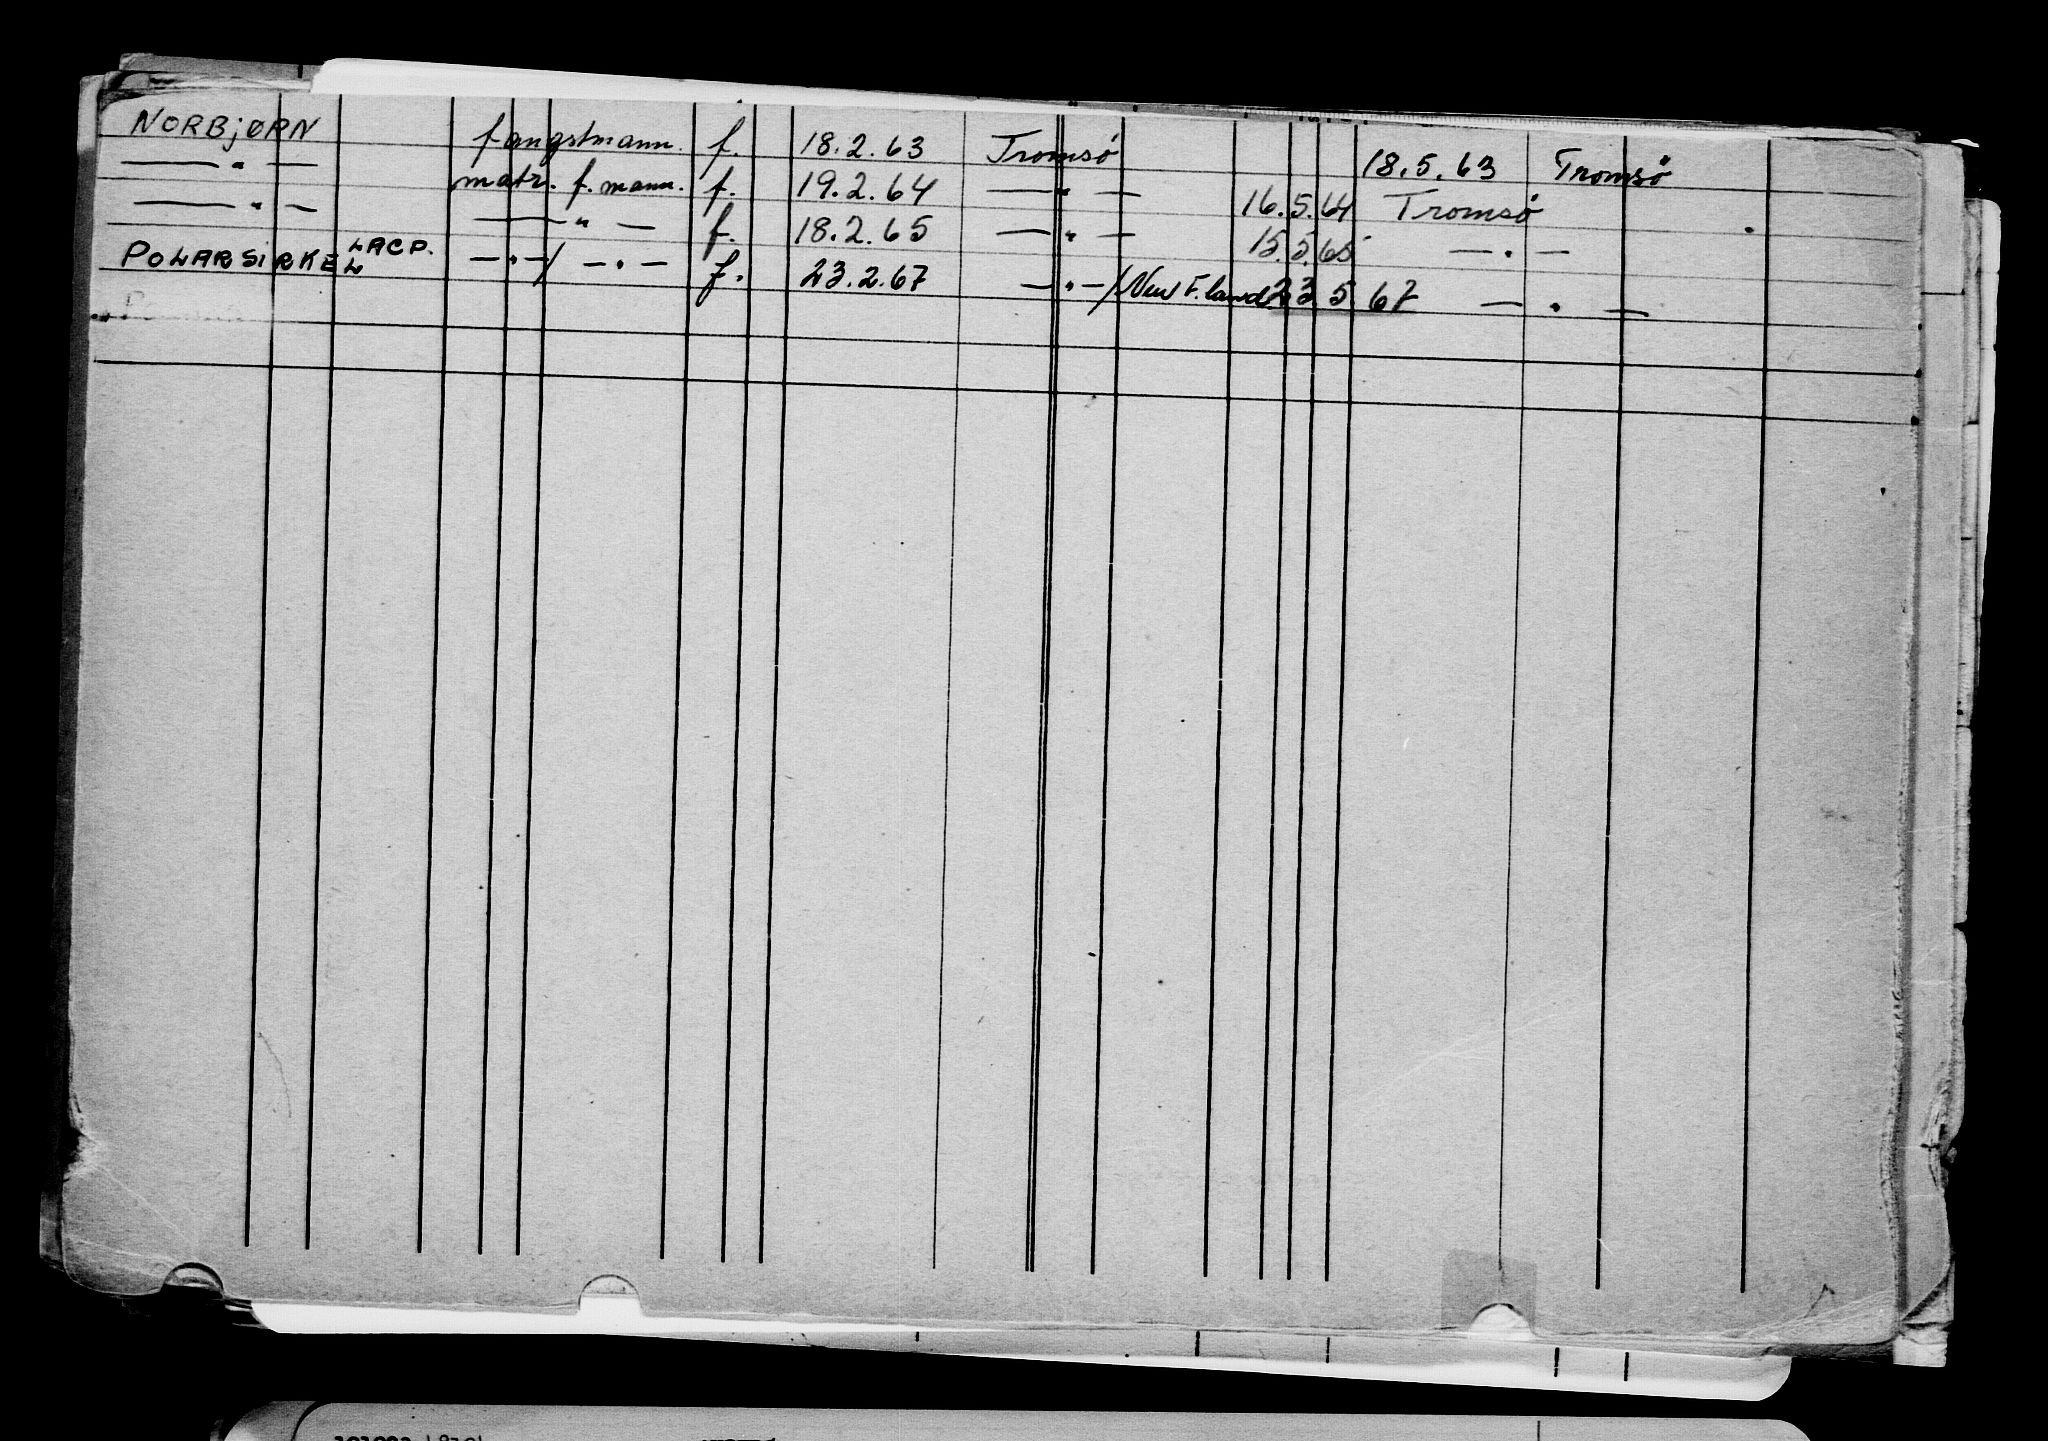 NORBJØRN fangstmann. f. 18.2.63 Tromsö 18.5.63 Tromsö
— " — matr. f. mann. f. 19.2.64 — " — 16.5.64 Tromsö
— " — — " — f. 18.2.65 — " — 15.5.65 — " —
POLARSIRKEL LACP. — " — / — " — f. 23.2.67 — " — / New F. land 23 5 67 — " —